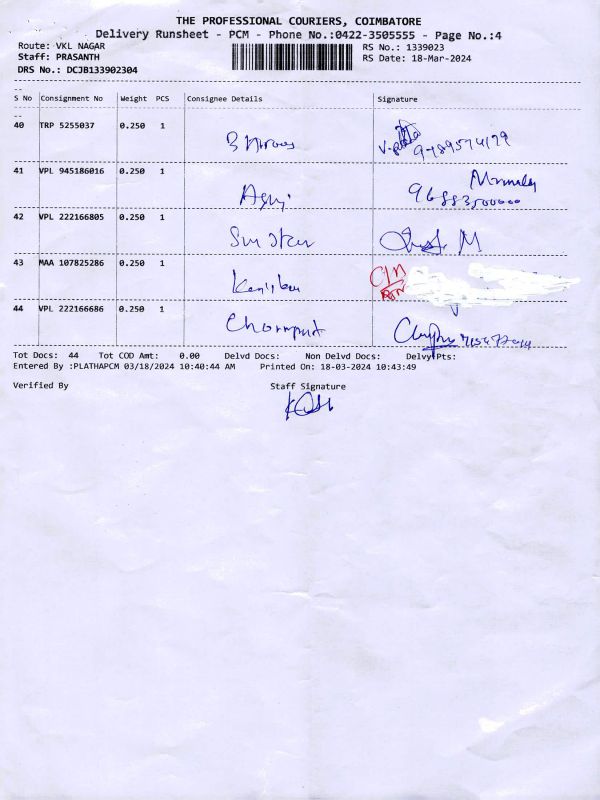 THE PROFESSIONAL COURIERS, COIMBATORE
Delivery Runsheet - PCM - Phone No.:0422-3505555 - Page No.:4
Route: VKL NAGAR RS No.: 1339023
Staff: PRASANTH RS Date: 18-Mar-2024
DRS No.: DCJB133902304
S No Consignment No Weight PCS Consignee Details Signature
40 TRP 5255037 0.250 1
41 VPL 945186016 0.250 1
42 VPL 222166805 0.250 1
43 MAA 107825286 0.250 1
44 VPL 222166686 0.250 1
Tot Docs: 44 Tot COD Amt: 0.00 Delvd Docs: Non Delvd Docs: Delvy Pts:
Entered By :PLATHAPCM 03/18/2024 10:40:44 AM Printed On: 18-03-2024 10:43:49
Verified By Staff Signature